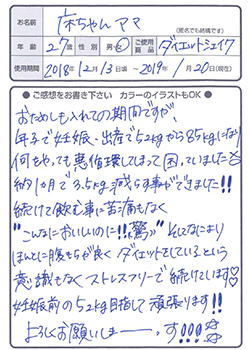 お名前 ママ
(匿名でも結構です)
年齢 27才 性別 男・女 ご使用商品 ダイエットシェイク
使用期間 2018年12月13日頃 ～ 2019年1月20日(現在)
●ご感想をお書き下さい カラーのイラストもOK●
おためしも入れての期間ですが、
年子で妊娠、出産で52kgから85kgになり
何をやっても悪循環してしまって困っていました
約1ヶ月で3.5kg減らす事ができました!!
続けて飲む事に苦痛もなく
"こんなにおいしいのに!!驚"
ほんとに腹もちが良く ダイエットをしているという
意識もなくストレスフリーで続けています♡
妊娠前の52kg目指して頑張ります!!
よろしくお願いしまーーす!!!